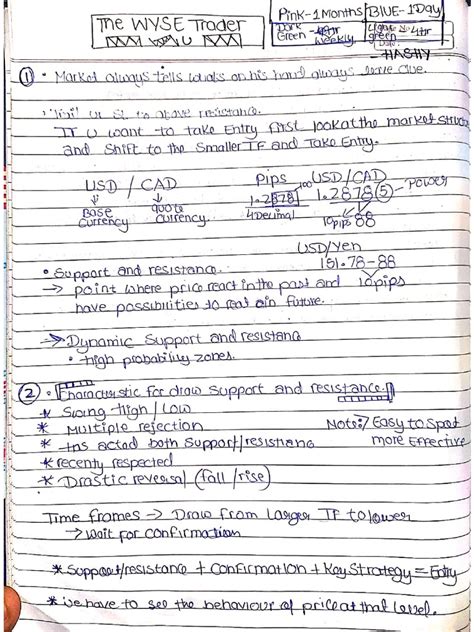 The WYSE Trader
Pink-1 Months
BlUE-1Day
Dark Green -
weekly
green
4Hr
HASHY
① • Market always tells on his hand always leave clue.
to above resistance.
If u want to take Entry first look at the market struc
and Shift to the Smaller TF and Take Entry.
USD / CAD
Pips
USD/CAD
Base currency
quote currency
1.2878
100
1.2878(5) - Power
4 Decimal
10 pips 88
USD/Yen
151.78-88
10pips
• Support and resistance.
→ point where price react in the past and
have possibilities to in future.
→ Dynamic Support and resistance
• high probability zones.
② • Characteristic for draw Support and resistance.
* Swing high / Low
* Multiple rejection
Note:7 Easy to Spot
more Effective
* Has acted both Support/resistance
* recently respected
* Drastic reversal (fall /rise)
Time frames → Draw from Larger TF to lower
→ wait for confirmation
* Support/resistance + confirmation + Key Strategy = Entry
* we have to see the behaviour of price at that level.